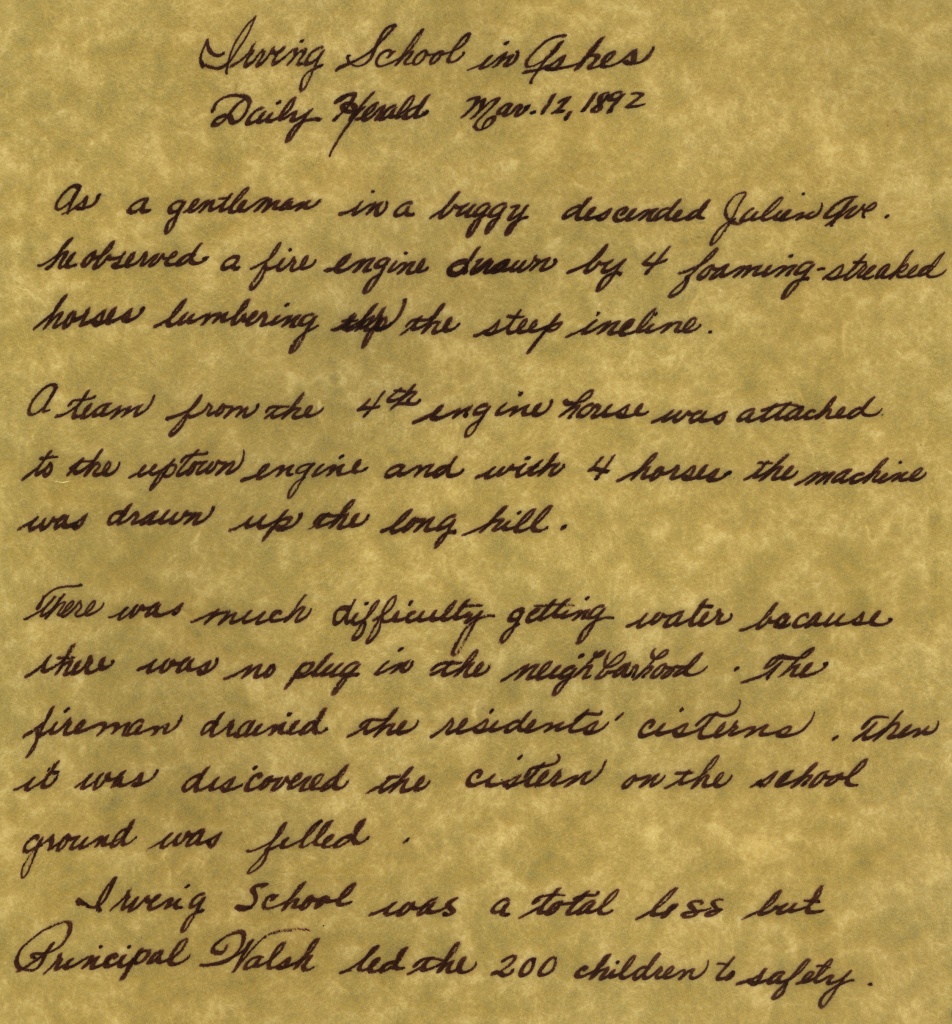 Irving School in Ashes
Daily Herald Mar. 12, 1892
As a gentleman in a buggy descended Julien Ave.
he observed a fire engine drawn by 4 foaming-streaked
horses lumbering up the steep incline.
A team from the 4th engine house was attached
to the uptown engine and with 4 horses the machine
was drawn up the long hill.
There was much difficulty getting water because
there was no plug in the neighborhood. The
fireman drained the residents' cisterns. Then
it was discovered the cistern on the school
ground was filled.
Irving School was a total loss but
Principal Walsh led the 200 children to safety.